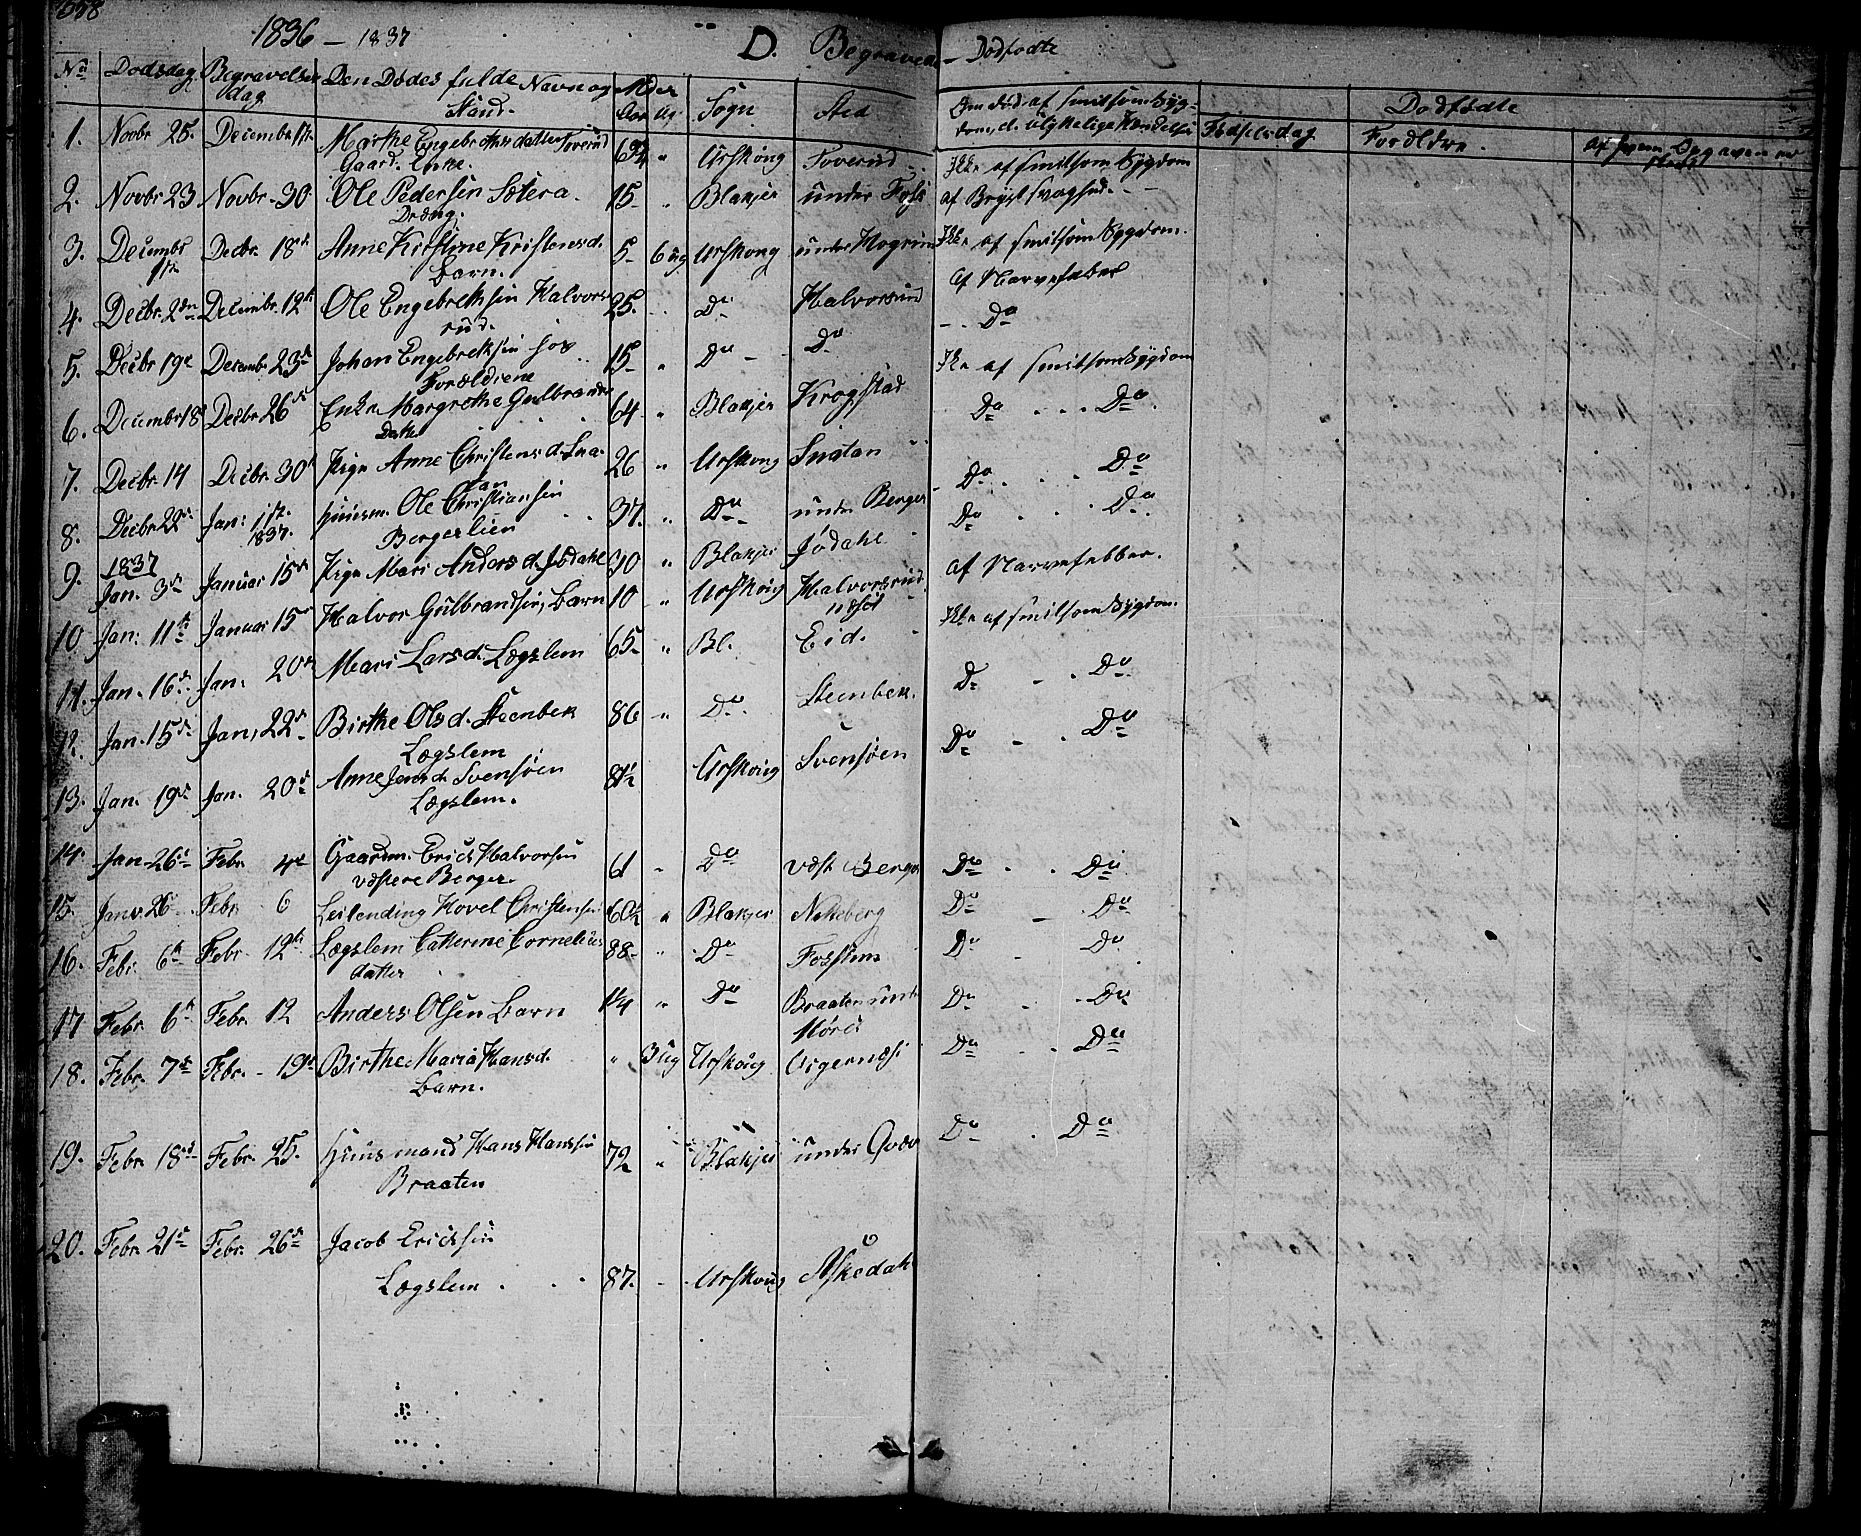 1836 – 1837 D. Begravede – Dødfødte
No Dødsdag Begravelsesdag Den Dødes fulde Navn og Stand. Alder Aar Ug. Sogn Sted Om død af smitsom Sygdom, el. ulykkelige Hændelser Fødselsdag Dødfødte Forældre.
1. Novbr 25. Decembr 1ste Marthe Engebrethsdatter Toverud 69 " Urskoug Toverud. Ikke af smitsom Sygdom
Gaard. Enke.
2. Novbr 23 Novbr. 30 Ole Pedersen Sætera. 15 . Blakjer under Foss af Brystsvaghed. –
Dræng.
3. Decembr 1ste Decbr. 18de Anne Kirstine Kristensd. 5 6 ug Urskoug under Hogrim Ikke af smitsom Sygdom.
Barn.
4. Decbr. 2den Decembr. 12te Ole Engebrethsen Halvorsrud. 25. Do Halvorsrud af Narvefeber
5. Decbr 19e Decembr 23de Johan Engebrethsen hos Forældrene 15 " Do – Do – . Do
6. Decembr 18 Decbr 26de Enke Margrethe Gulbrandsdatter 64 " Blakjer Krogstad Ikke af smitsom Sygdom
7. Decbr. 14 Decbr. 30te Pige Anne Christensd. Snatan 26 " Urskoug Snatan Do . . . Do
8. Decbr 22de Jan: 1ste 1837. Huusm. Ole Christiansen Bergerlien 37. " Do under Berger Do . . Do
9. 1837 Jan. 3de Januar 15de Pige Mari Andersd. Jødahl 30 " Blakjer Jødahl Do . . Do
10 Jan: 11te Januar 15de Halvor Gulbrandsen, Barn 10 " Urskoug Halvorsrud af Narvefebber.
11. Jan. 16de Jan. 20de Mari Larsd. Lægslem 65 " Bl. Eid. Ikke af smitsom Sygdom.
12. Jan. 15de Jan, 22de Birthe Olsd. Steenbek 86 " Do Steenbek. Do – . Do
Lægslem
13. Jan. 19de Jan. 20de Anne Jensd. Svensøen 81½ Urskoug Svensøen Do – . Do
Lægslem.
14. Jan 26de Febr. 4de Gaardm. Erich Halvorsen 61 " Do vest Berger Do . . Do
vestere Berger.
15. Janv. 26 Febr. 6 Leilending Hovel Christensen 60½ " Blakjer Nikeberg Do – Do
16. Febr. 6te Febr. 12te Lægslem Catherine Cornelius datter 88 " Do Fosstun Do – Do
17 Febr. 6te Febr. 12 Anders Olsen Barn 1¼ " Do Braaten under Mørch Do – . Do
18. Febr. 7de Febr. – 19de Birthe Maria Hansd. " 3 ug Urskoug Urgernæs Do . . Do
Barn.
19. Febr. 18de Febr. 25. Huusmand Hans Hansen 72 " Blakjer under Qvæv Do . Do
Braaten
20. Febr. 21de Febr. 26de Jacob Erichsen
Lægslem . . . 87. – Urskoug Askedahl